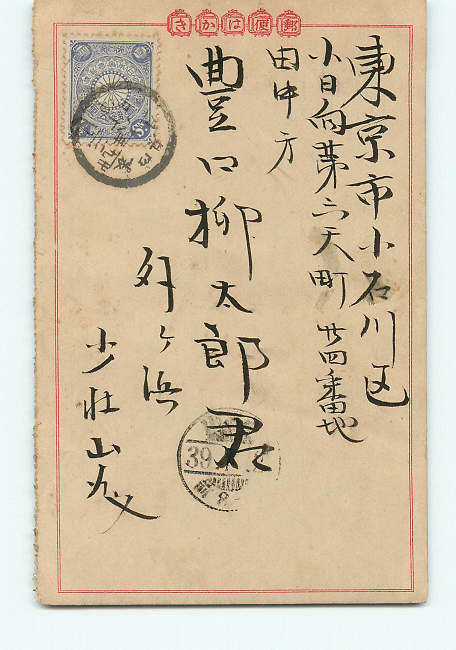 郵便はかき
東京市小石川区
小日向第六天町廿四番地
田中方
豊口柳太郎君
外ヶ浜
少壮山人
39